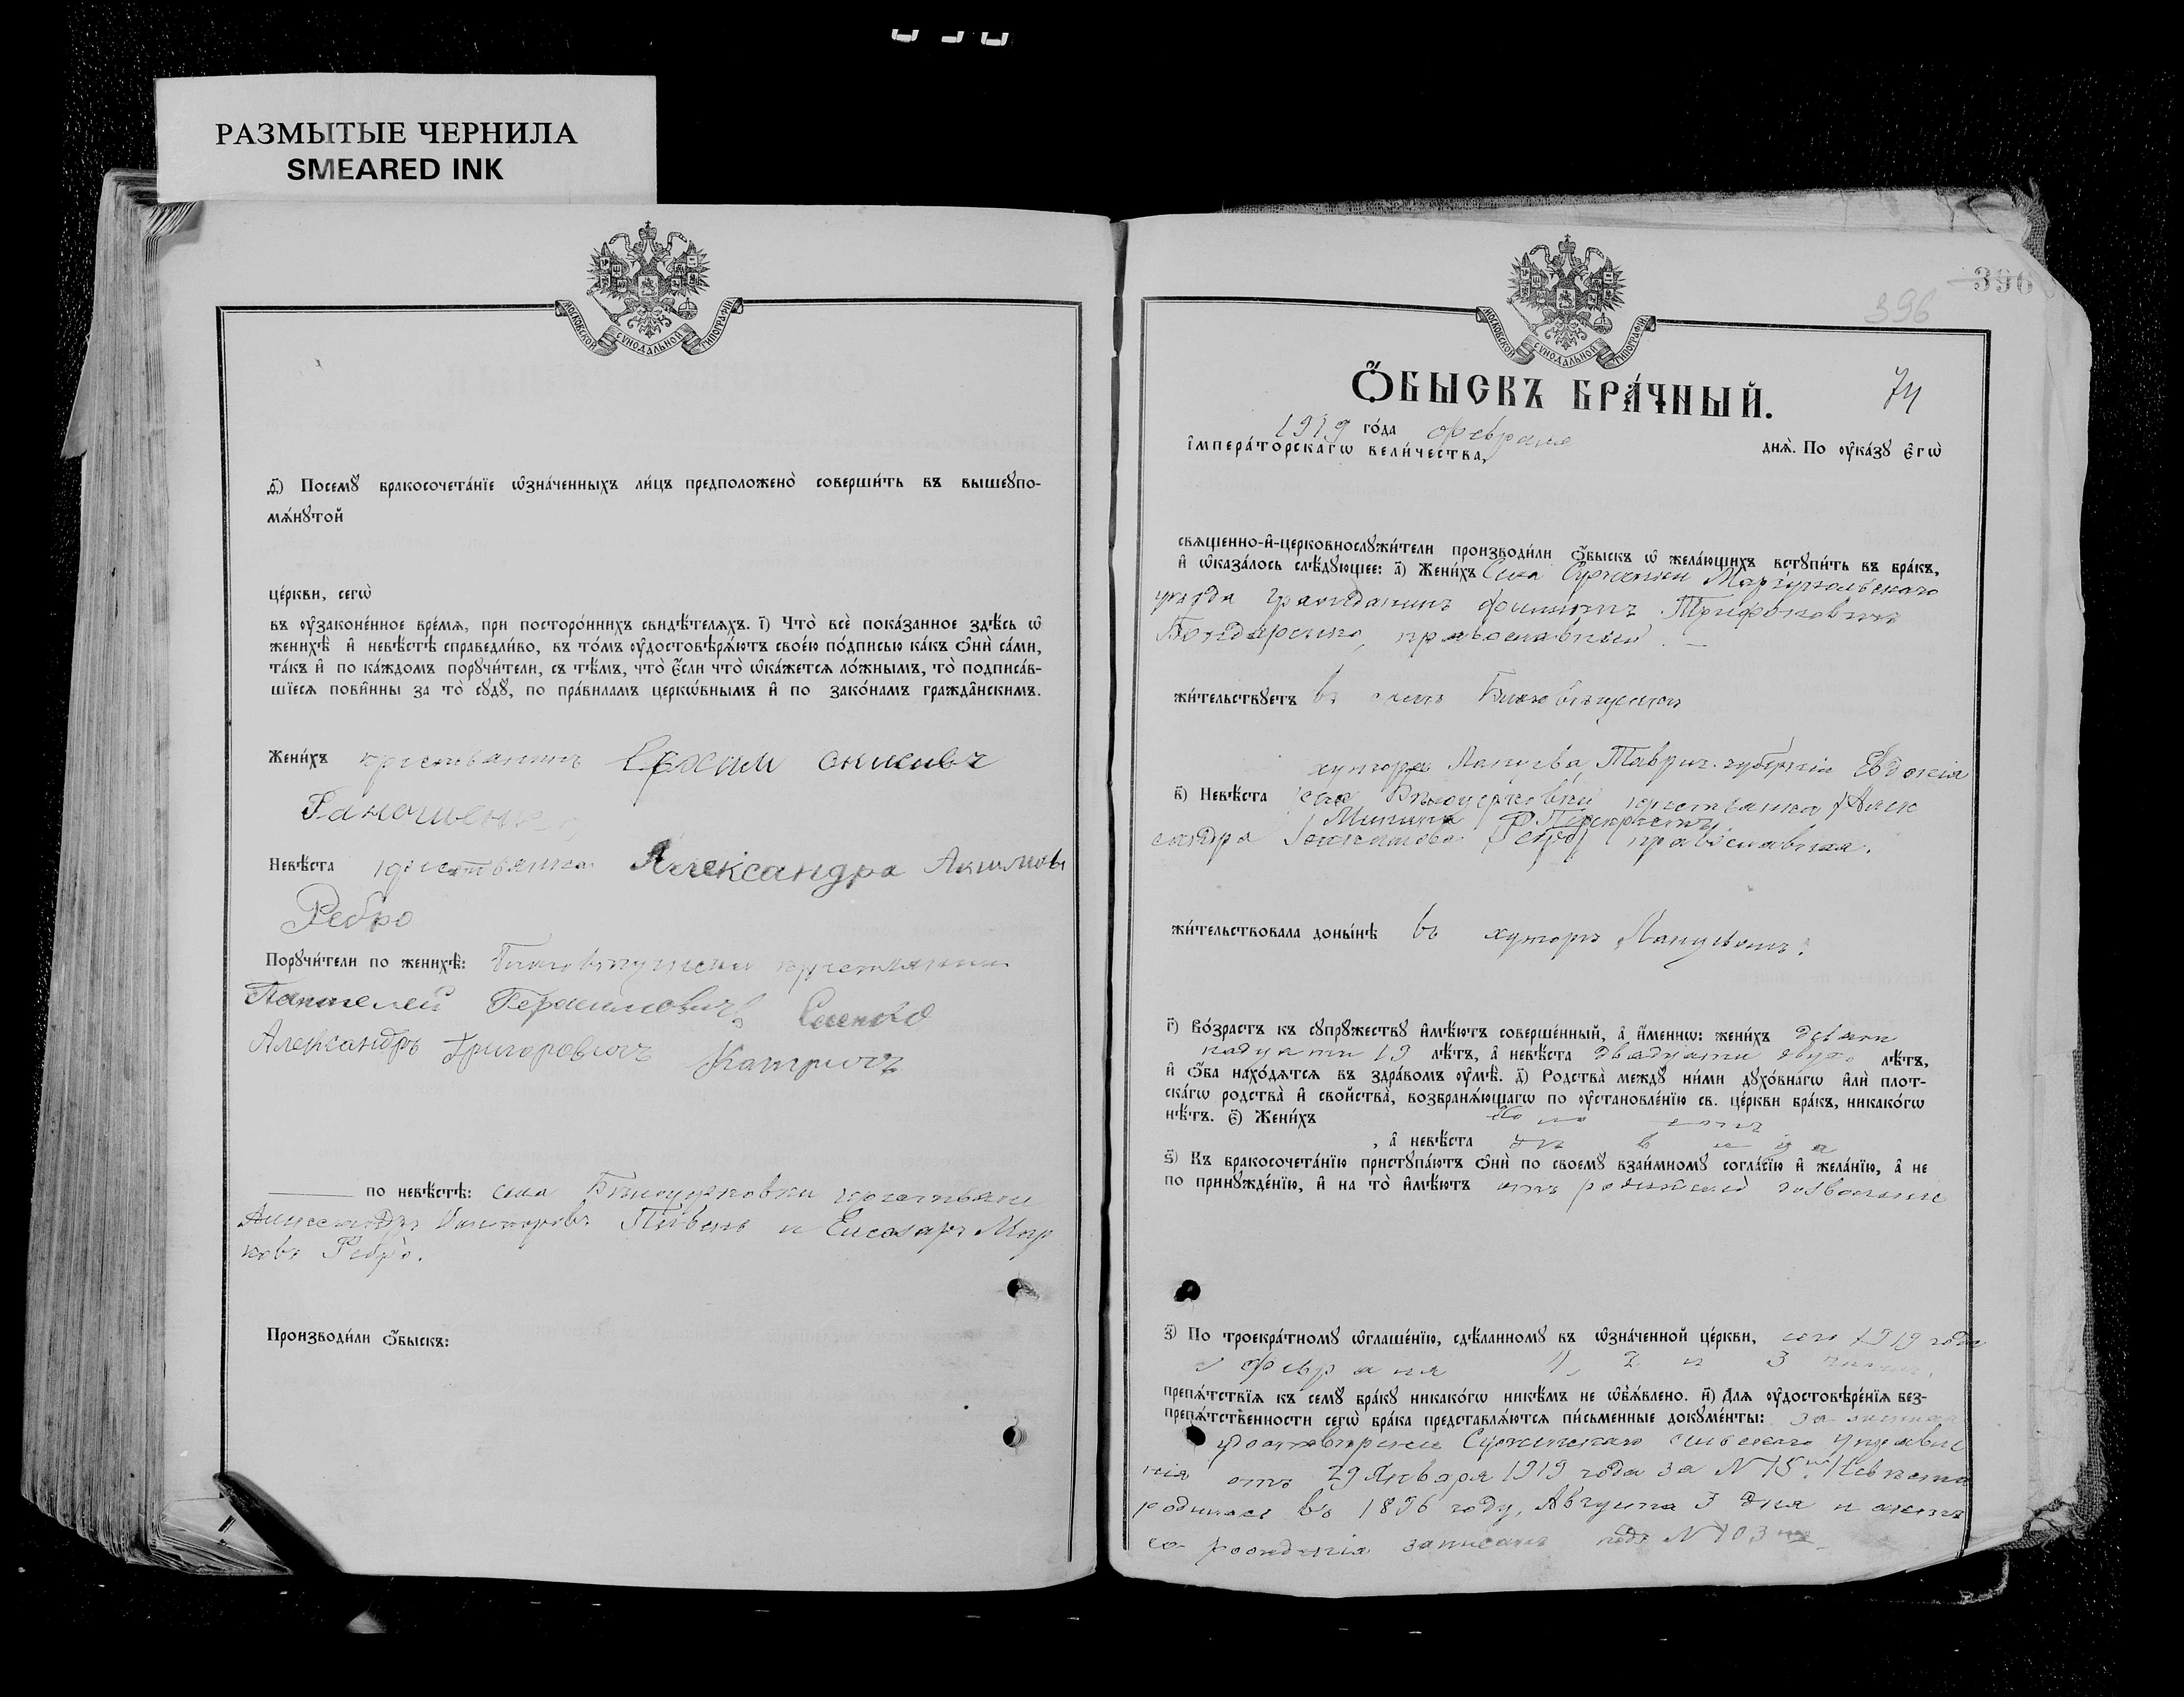 РАЗМЫТЫЕ ЧЕРНИЛА
SMEARED INK
МОСКОВСКОЙ СѴНОДАЛЬНОЙ ТИПОГРАФІИ
Ѳ҃) Посемꙋ̀ бракосочета́нїе ѡ҆зна́ченныхъ ли́цъ предположено̀ соверши́ть въ вышеꙋпо-
мѧ́нꙋтой
це́ркви, сегѡ̀
въ ᲂу҆законе́нное вре́мѧ, при посторо́ннихъ свидѣ́телѧхъ. І҃) Что̀ всѐ пока́занное здѣ́сь ѡ҆
женихѣ̀ и҆ невѣ́стѣ справедли́во, въ то́мъ ᲂу҆достовѣрѧ́ютъ свое́ю по́дписью ка́къ ѻ҆нѝ са́ми,
та́къ и҆ по ка́ждомъ порꙋчи́тели, съ тѣ́мъ, что̀ є҆́сли что̀ ѡ҆ка́жетсѧ ло́жнымъ, то̀ подписа́в-
шїесѧ пови́нны за то̀ сꙋдꙋ̀, по пра́виламъ церкѡ́внымъ и҆ по зако́намъ гражда̑нскимъ.
Жени́хъ крестьянинъ
Невѣ́ста крестьянка Александра Акимова
Ребро
Порꙋчи́тели по женихѣ̀:
Пантелей Герасимовичъ
Александръ Григоровичъ
по невѣ́стѣ: села Бѣлоцерковки крестьяне
Пивень и Елеазаръ Мар
ковъ Ребро.
Производи́ли ѻ҆́быскъ:
МОСКОВСКОЙ СѴНОДАЛЬНОЙ ТИПОГРАФІИ
396
396
74
Ѻ҆́БЫСКЪ БРА́ЧНЫЙ.
1919 го́да февраля днѧ̀. По ᲂу҆ка́зꙋ є҆гѡ̀
і҆мпера́торскагѡ вели́чества,
свѧще́нно-и҆-церковнослꙋжи́тели производи́ли ѻ҆́быскъ ѡ҆ жела́ющихъ встꙋпи́ть въ бра́къ,
и҆ ѡ҆каза́лось слѣ́дꙋющее: а҃) Жени́хъ Села Сурженки Маріупольскаго
уѣзда гражданинъ Филиппъ Трифоновичъ
Бондаренко, православный.
жи́тельствꙋетъ въ селѣ
хутора Лапуева, Таврич. губерніи Евдокія
в҃) Невѣ́ста села Бѣлоцерковки крестьянка Алек
Минина
сандра Іоакимова Ребро православная.
жи́тельствовала доны́нѣ въ хуторѣ Лапуевомъ.
г҃) Во́зрастъ къ сꙋпрꙋ́жествꙋ и҆мѣ́ютъ соверше́нный, а҆ и҆́меннѡ: жени́хъ девят
надцати 19 лѣ́тъ, а҆ невѣ́ста двадцати двухъ лѣ́тъ,
и҆ ѻ҆́ба нахо́дѧтсѧ въ здра́вомъ ᲂу҆мѣ̀. д҃) Родства̀ междꙋ̀ ни́ми дꙋхо́внагѡ и҆лѝ плот-
ска́гѡ родства̀ и҆ сво́йства, возбранѧ́ющагѡ по ᲂу҆становле́нїю св. це́ркви бра́къ, никако́гѡ
нѣ́тъ. є҃) Жени́хъ холостъ
, а҆ невѣ́ста дѣвица
ѕ҃) Къ бракосочета́нїю пристꙋпа́ютъ ѻ҆нѝ по своемꙋ̀ взаи́мномꙋ согла́сїю и҆ жела́нїю, а҆ не
по принꙋжде́нїю, и҆ на то̀ и҆мѣ́ютъ отъ родителей дозволеніе
з҃) По троекра́тномꙋ ѡ҆глаше́нїю, сдѣ́ланномꙋ въ ѡ҆зна́ченной це́ркви, сего 1919 года
февраля 1, 2 и 3 числа,
препѧ́тствїѧ къ семꙋ̀ бра́кꙋ никако́гѡ никѣ́мъ не ѡ҆б̾ѧ́влено. и҃) Длѧ ᲂу҆достовѣре́нїѧ без-
препѧ́тственности сегѡ̀ бра́ка представлѧ́ютсѧ пи́сьменные докꙋме́нты:
удостовѣреніе Сурженскаго сельскаго управле
нія отъ 29 Января 1919 года за № 15. Невѣста
родилась въ 1896 году, Августа 3 дня и актъ
ея рожденія записанъ подъ № 103